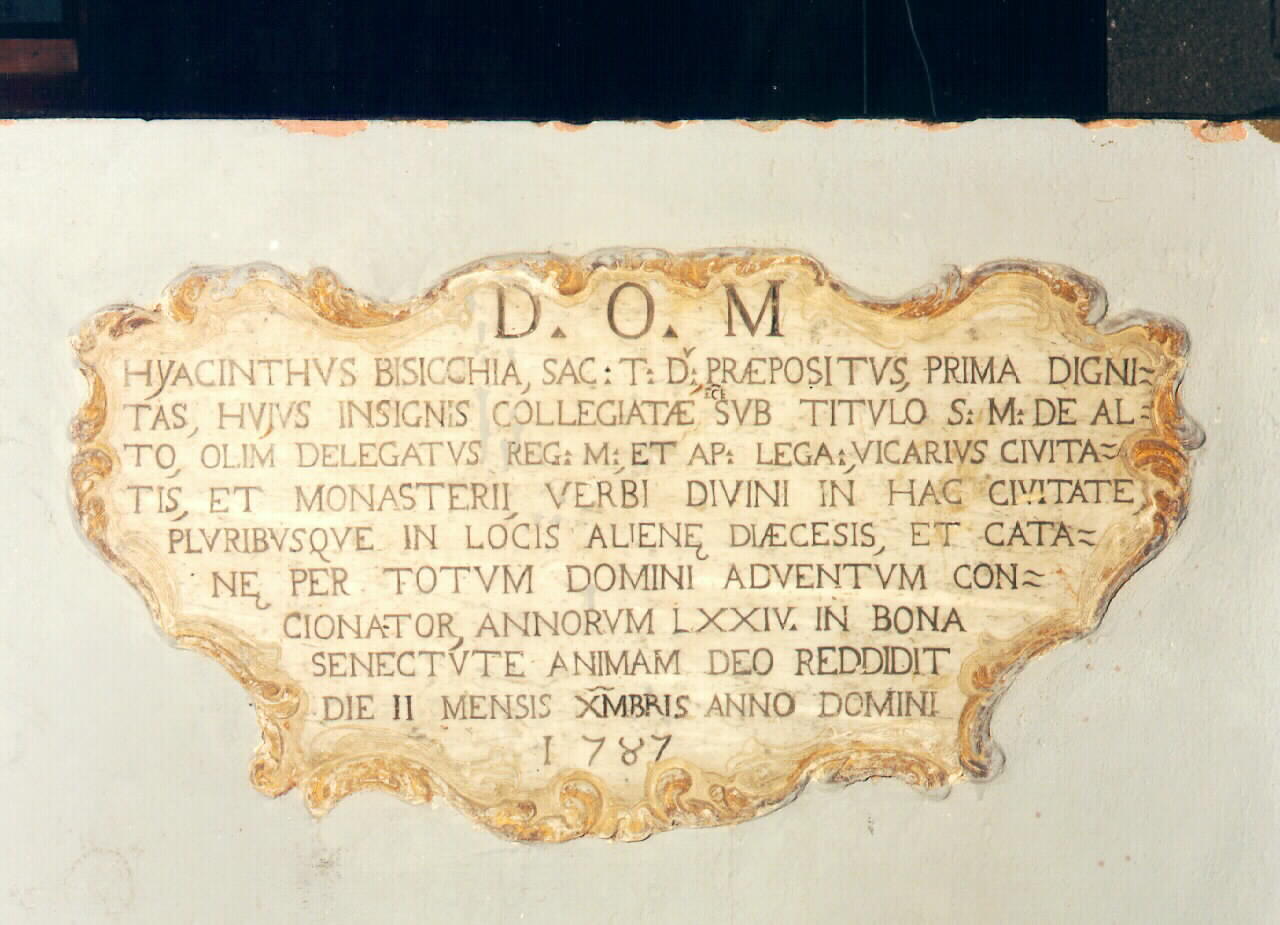 D. O. M
HYACINTHVS BISICCHIA, SAC: T: Dṛ: PRÆPOSITVS, PRIMA DIGNI~
TAS, HUJUS INSIGNIS COLLEGIATÆ ECE SVB TITVLO S: M: DE AL~
TO, OLIM DELEGATVS REG: M:, ET AP: LEGA:, VICARIVS CIVITA~
TIS, ET MONASTERII, VERBI DIVINI IN HAC CIVITATE,
PLVRIBVSQVE IN LOCIS ALIENĘ DIÆCESIS, ET CATA~
NĘ PER TOTVM DOMINI ADVENTVM CON~
CIONATOR, ANNORVM LXXIV. IN BONA
SENECTVTE ANIMAM DEO REDDIDIT
DIE II MENSIS XM̃BRIS ANNO DOMINI
1787